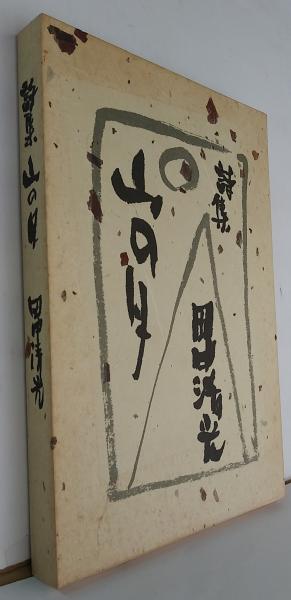 詩集
田中清光
山の月
詩集 山の月 田中清光